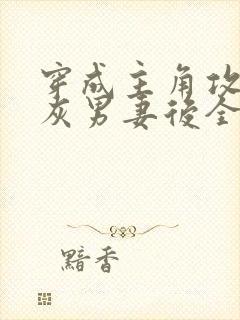 穿成主角攻
灰男妻后全
黯香